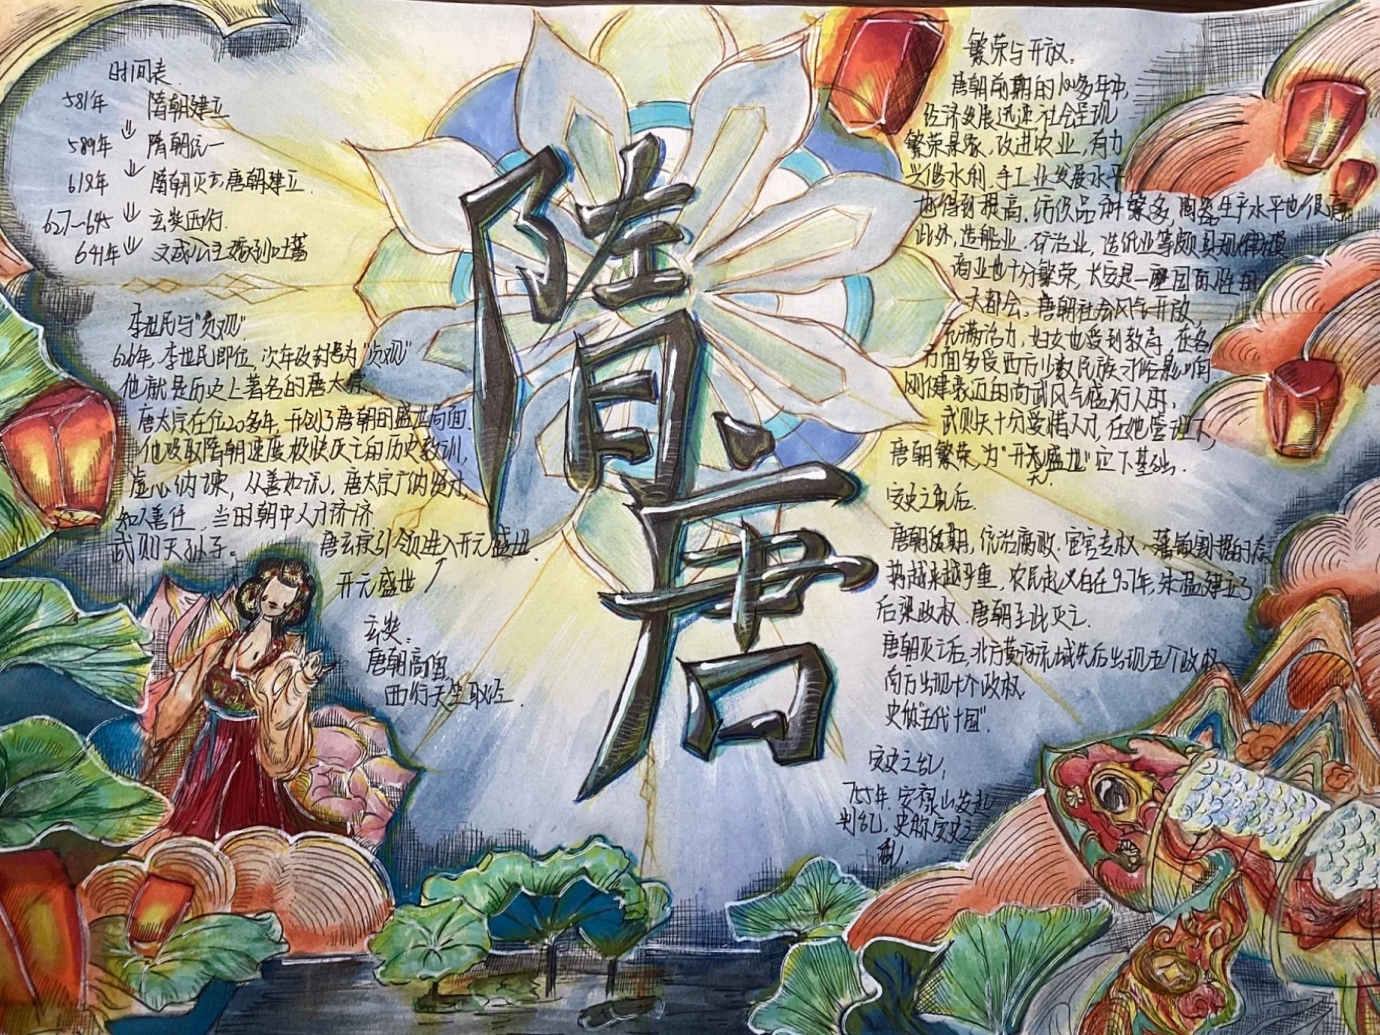 时间表
581年 隋朝建立
589年 隋朝统一
618年 隋朝灭亡,唐朝建立.
玄奘西行.
641年 文成公主嫁到吐蕃
李世民与"贞观"
626年,李世民即位,次年改封号为"贞观"
他就是历史上著名的唐太宗
唐太宗在位20多年,开创了唐朝的盛世局面.
他吸取隋朝速度极快灭亡的历史教训,
虚心纳谏,从善如流,唐太宗广纳贤才,
知人善任,当时朝中人才济济
武则天孙子。 唐玄宗引领进入开元盛世.
开元盛世
玄奘:
唐朝高僧
西行天竺取经.
隋
唐
繁荣与开放。
唐朝前期的100多年中,
经济发展迅速,社会呈现
繁荣景象,改进农业,有力
兴修水利.手工业发展水平
也得到提高,纺织品种繁多,陶瓷生产水平也很高
此外,造船业、矿冶业,造纸业等颇具规模
商业也十分繁荣,长安是一座国际性的
大都会。唐朝社会风气开放,
充满活力,妇女也受到教育,在各
方面多受西方少数民族
刚健豪迈的尚武风气盛行
武则天十分爱惜人才,在她管理下,
唐朝繁荣,为"开元盛世"定下基础.
元
安史之乱后.
唐朝后期,统治腐败,宦官专权、藩镇割据的
势越来越严重,农民起义 在907年,朱温建立了
后梁政权.唐朝至此灭亡.
唐朝灭亡后,北方黄河流域先后出现五个政权
南方出现十个政权.
史称"五代十国".
安史之乱,
755年,安禄山发起